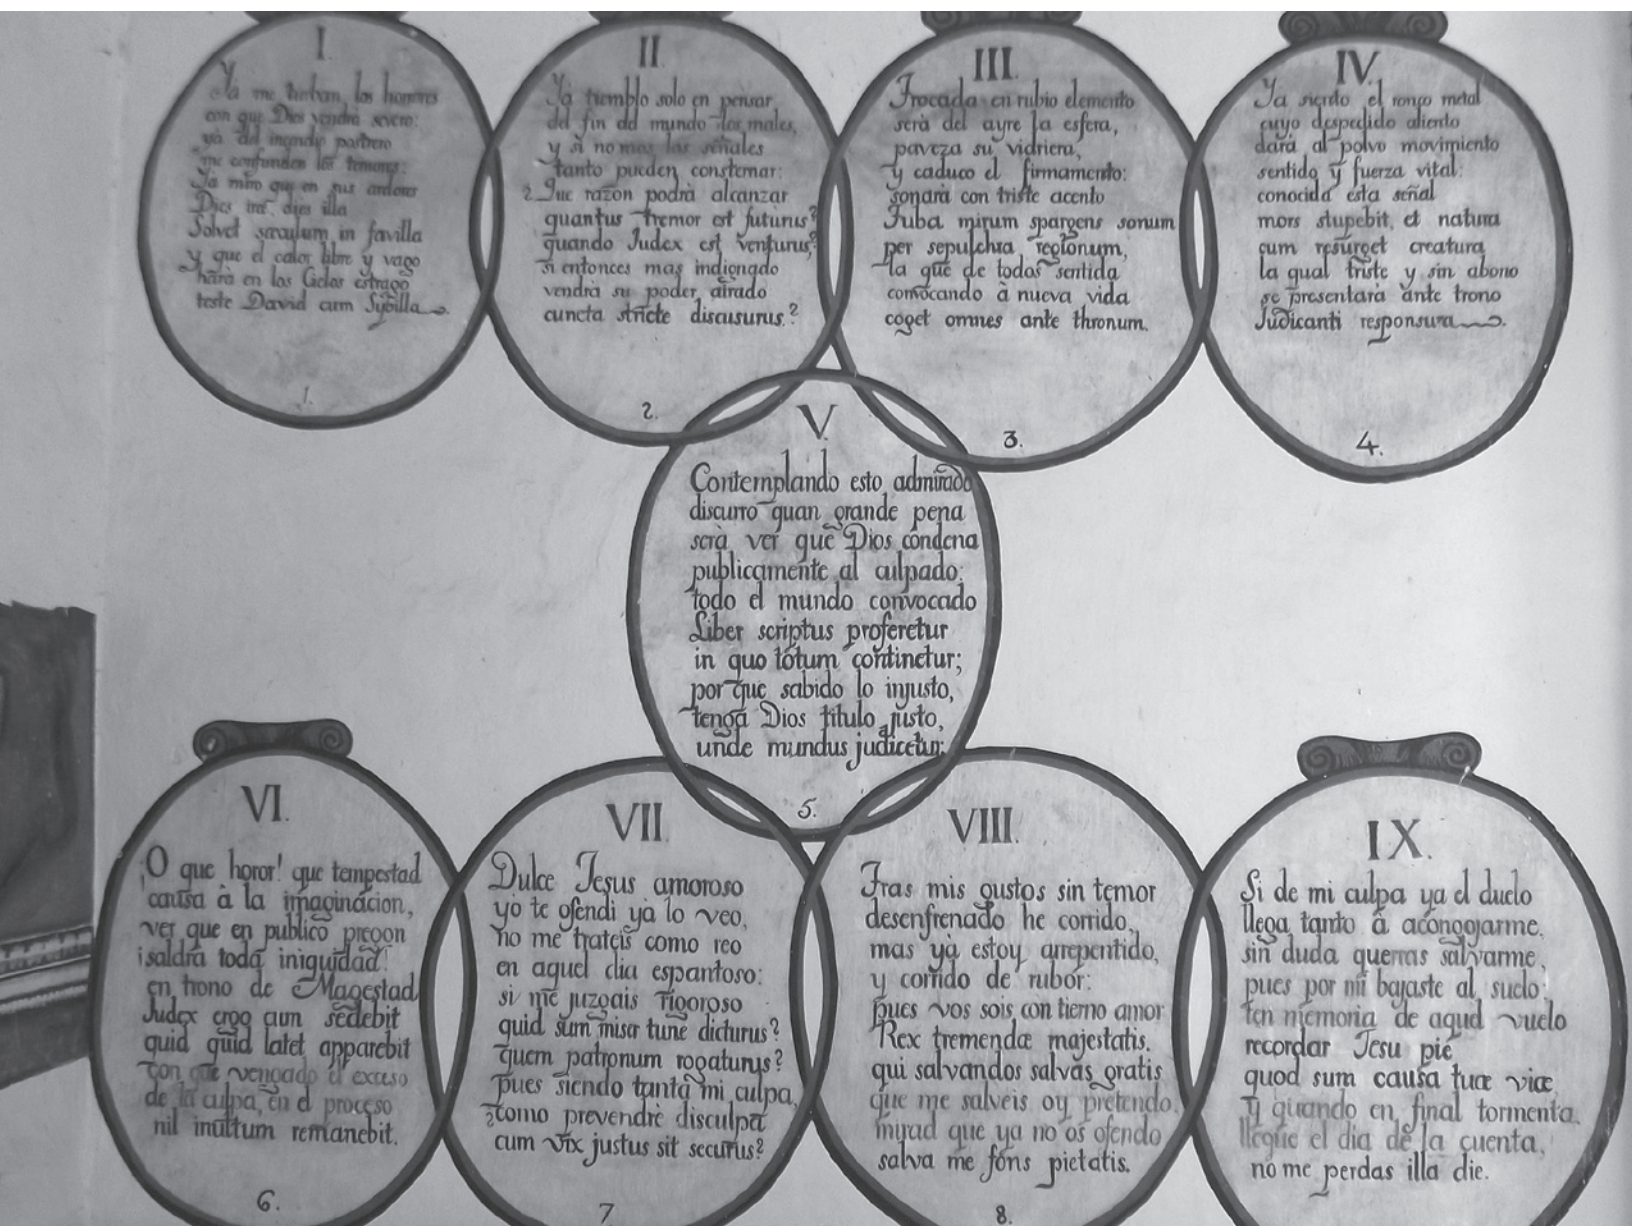 I.
Yà me turban los horrores
con que Dios vendrà severo:
yà del incendio postrero
me confunden los temores:
Yà miro que en sus ardores
Dies iræ, dies illa
Solvet sæculum in favilla
y que el calor libre y vago
harà en los Cielos estrago
teste David cum Sybilla
1.
II
Yà tremblo solo en pensar
del fin del mundo los males,
y si no mas las señales
tanto pueden consternar:
¿Que razon podrà alcanzar
quantus tremor est futurus?
quando Judex est venturus?
si entonces mas indignado
vendrà su poder airado
cuncta stricte discusurus?
2.
III.
Trocada en rubio elemento
serà del ayre la esfera,
paveza su vidriera,
y caduco el firmamento:
sonarà con triste acento
Tuba mirum spargens sonum
per sepulchra regionum,
la que de todos sentida
convocando à nueva vida
coget omnes ante thronum.
3.
IV.
Ya siento el ronco metal
cuyo despedido aliento
darà al polvo movimiento
sentido y fuerza vital:
conocida esta señal
mors stupebit, et natura
cum resurget creatura
la qual triste y sin abono
se presentarà ante trono
Judicanti responsura
4.
V.
Contemplando esto admirado
discurro quan grande pena
serà ver que Dios condena
publicamente al culpado:
todo el mundo convocado
Liber scriptus proferetur
in quo totum continetur;
por que sabido lo injusto,
tenga Dios titulo justo,
unde mundus judicetur.
5.
VI.
¡O que horor! que tempestad
causa à la imaginacion,
ver que en publico pregon
¡saldrà toda iniquidad!
en trono de Magestad
Judex ergo cum sedebit
quid quid latet apparebit
con que vengado el exceso
de la culpa, en el proceso
nil inultum remanebit.
6.
VII.
Dulce Jesus amoroso
yo te ofendi yà lo veo,
no me trateis como reo
en aquel dia espantoso:
si me juzgais rigoroso
quid sum miser tunc dicturus?
quem patronum rogaturus?
pues siendo tanta mi culpa,
¿como prevendrè disculpa
cum vix justus sit securus?
7
VIII.
Tras mis gustos sin temor
desenfrenado he corrido,
mas ya estoy arrepentido,
y corrido de rubor:
pues vos sois con tierno amor
Rex tremendæ majestatis.
qui salvandos salvas gratis
que me salveis oy pretendo.
mirad que ya no os ofendo
salva me fons pietatis.
8.
IX.
Si de mi culpa ya el duelo
llega tanto à acongojarme.
sin duda querras salvarme,
pues por mi bajaste al suelo:
ten memoria de aquel vuelo
recordar Jesu pie
quod sum causa tuæ viæ
y quando en final tormenta.
llegue el dia de la cuenta,
no me perdas illa die.